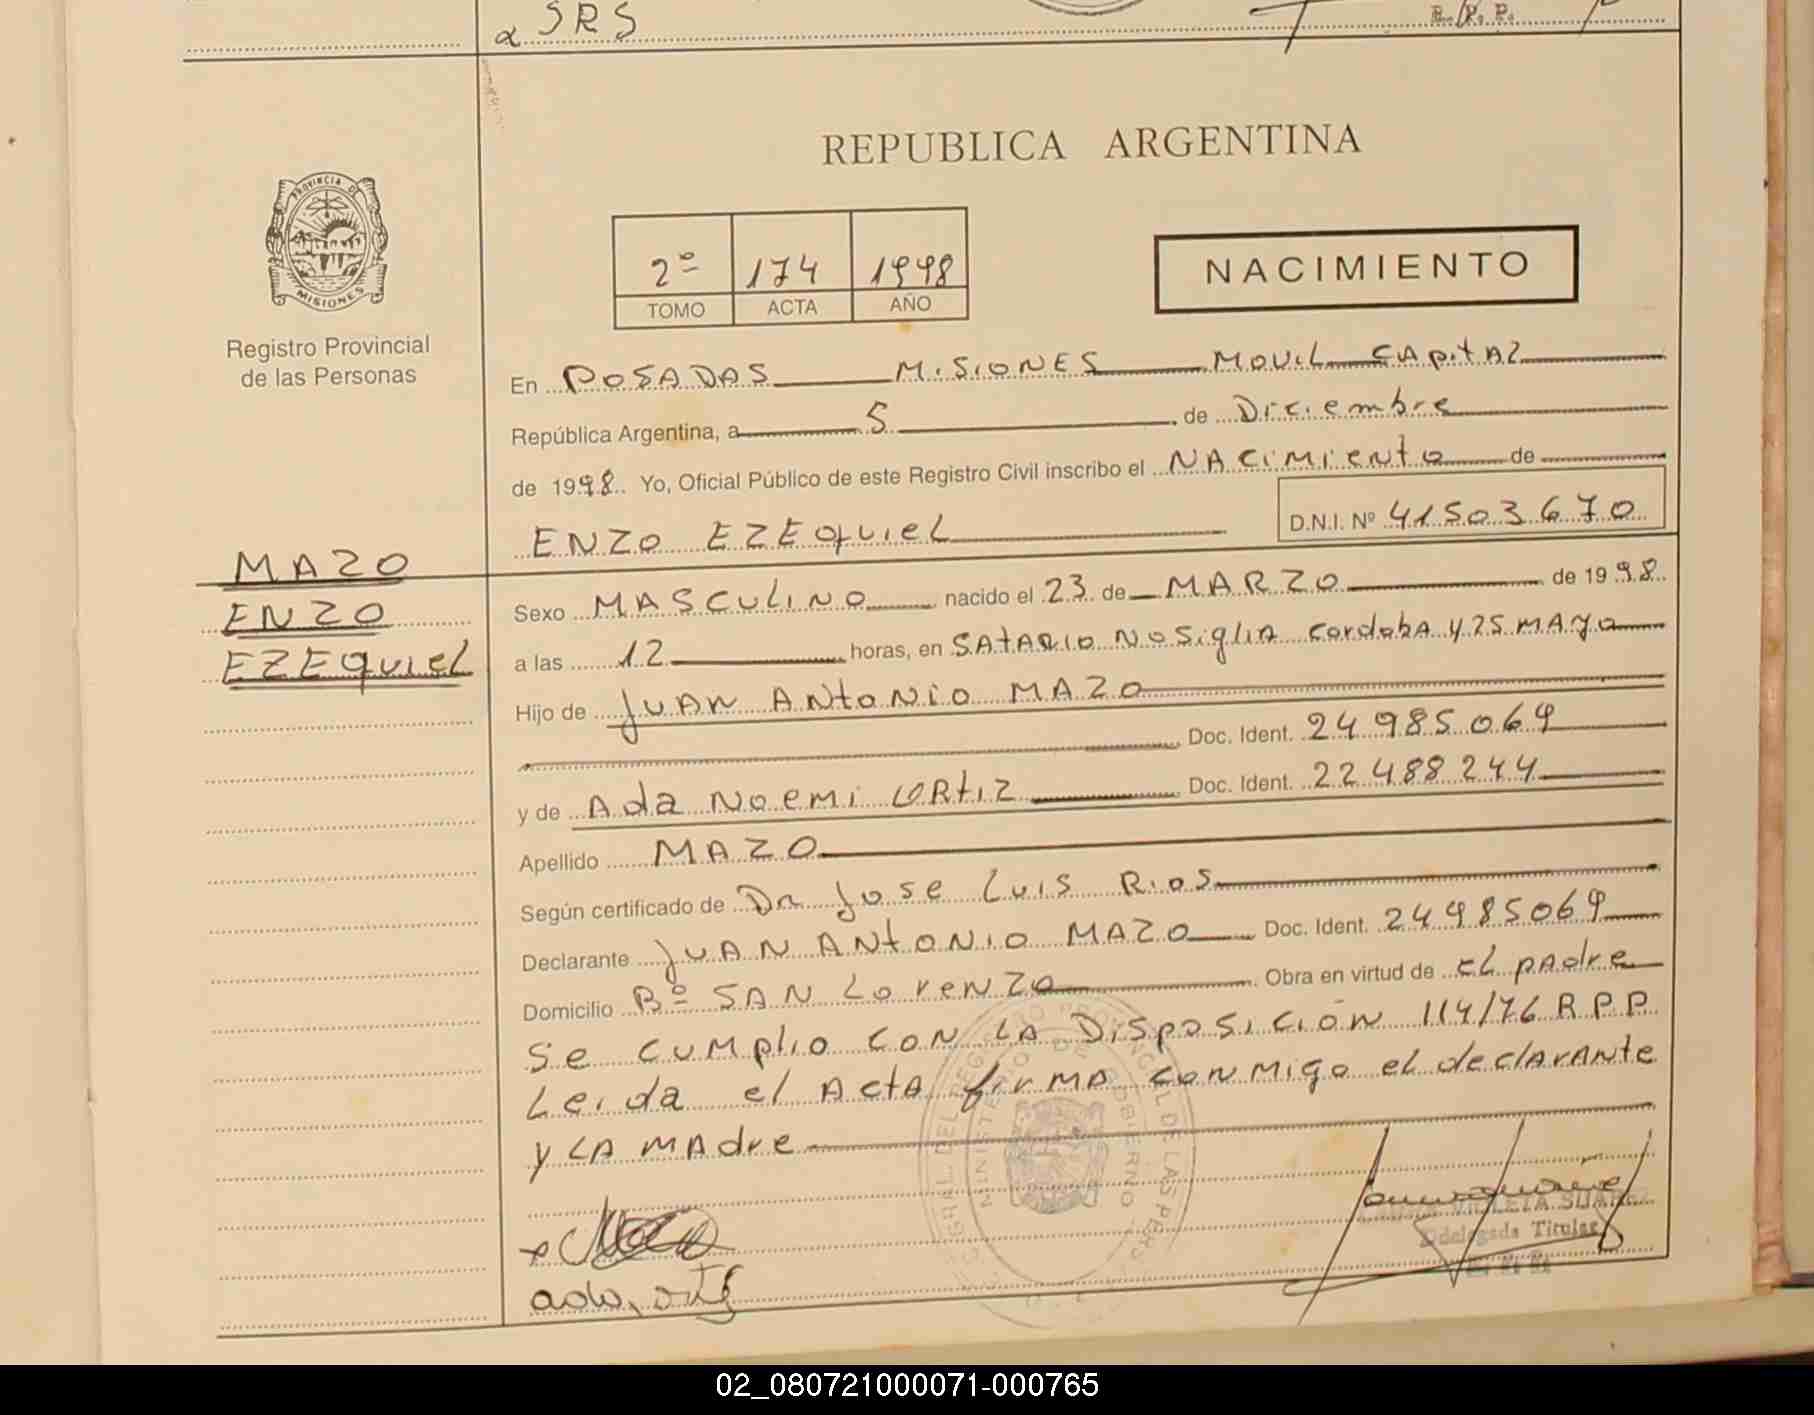 SRS
R. P. P.
PROVINCIA DE
MISIONES
Registro Provincial
de las Personas
REPUBLICA ARGENTINA
2º 174 1998
TOMO ACTA AÑO
NACIMIENTO
En POSADAS MISIONES MOVIL CAPITAL
República Argentina, a 5 de Diciembre
de 1998. Yo, Oficial Público de este Registro Civil inscribo el NACIMIENTO de
ENZO EZEQUIEL D.N.I. Nº 41503670
MAZO
ENZO
EZEQUIEL
Sexo MASCULINO nacido el 23 de MARZO de 1998
a las 12 horas, en SATARIO NOSIGLIA CORDOBA Y 25 MAYO
Hijo de JUAN ANTONIO MAZO
Doc. Ident. 24985069
y de Ada NOEMI ORTIZ Doc. Ident. 22488244
Apellido MAZO
Según certificado de Dr JOSE LUIS RIOS
Declarante JUAN ANTONIO MAZO Doc. Ident. 24985069
Domicilio Bº SAN LORENZO Obra en virtud de EL PADRE
Se cumplio CON LA DISPOSICIÓN 114/76 R.P.P.
Leida el ACTA firMA conmigo el declarante
y LA MAdre
MINISTERIO DE GOBIERNO
VIOLETA SUAREZ
Ddelegada Titular
02_080721000071-000765